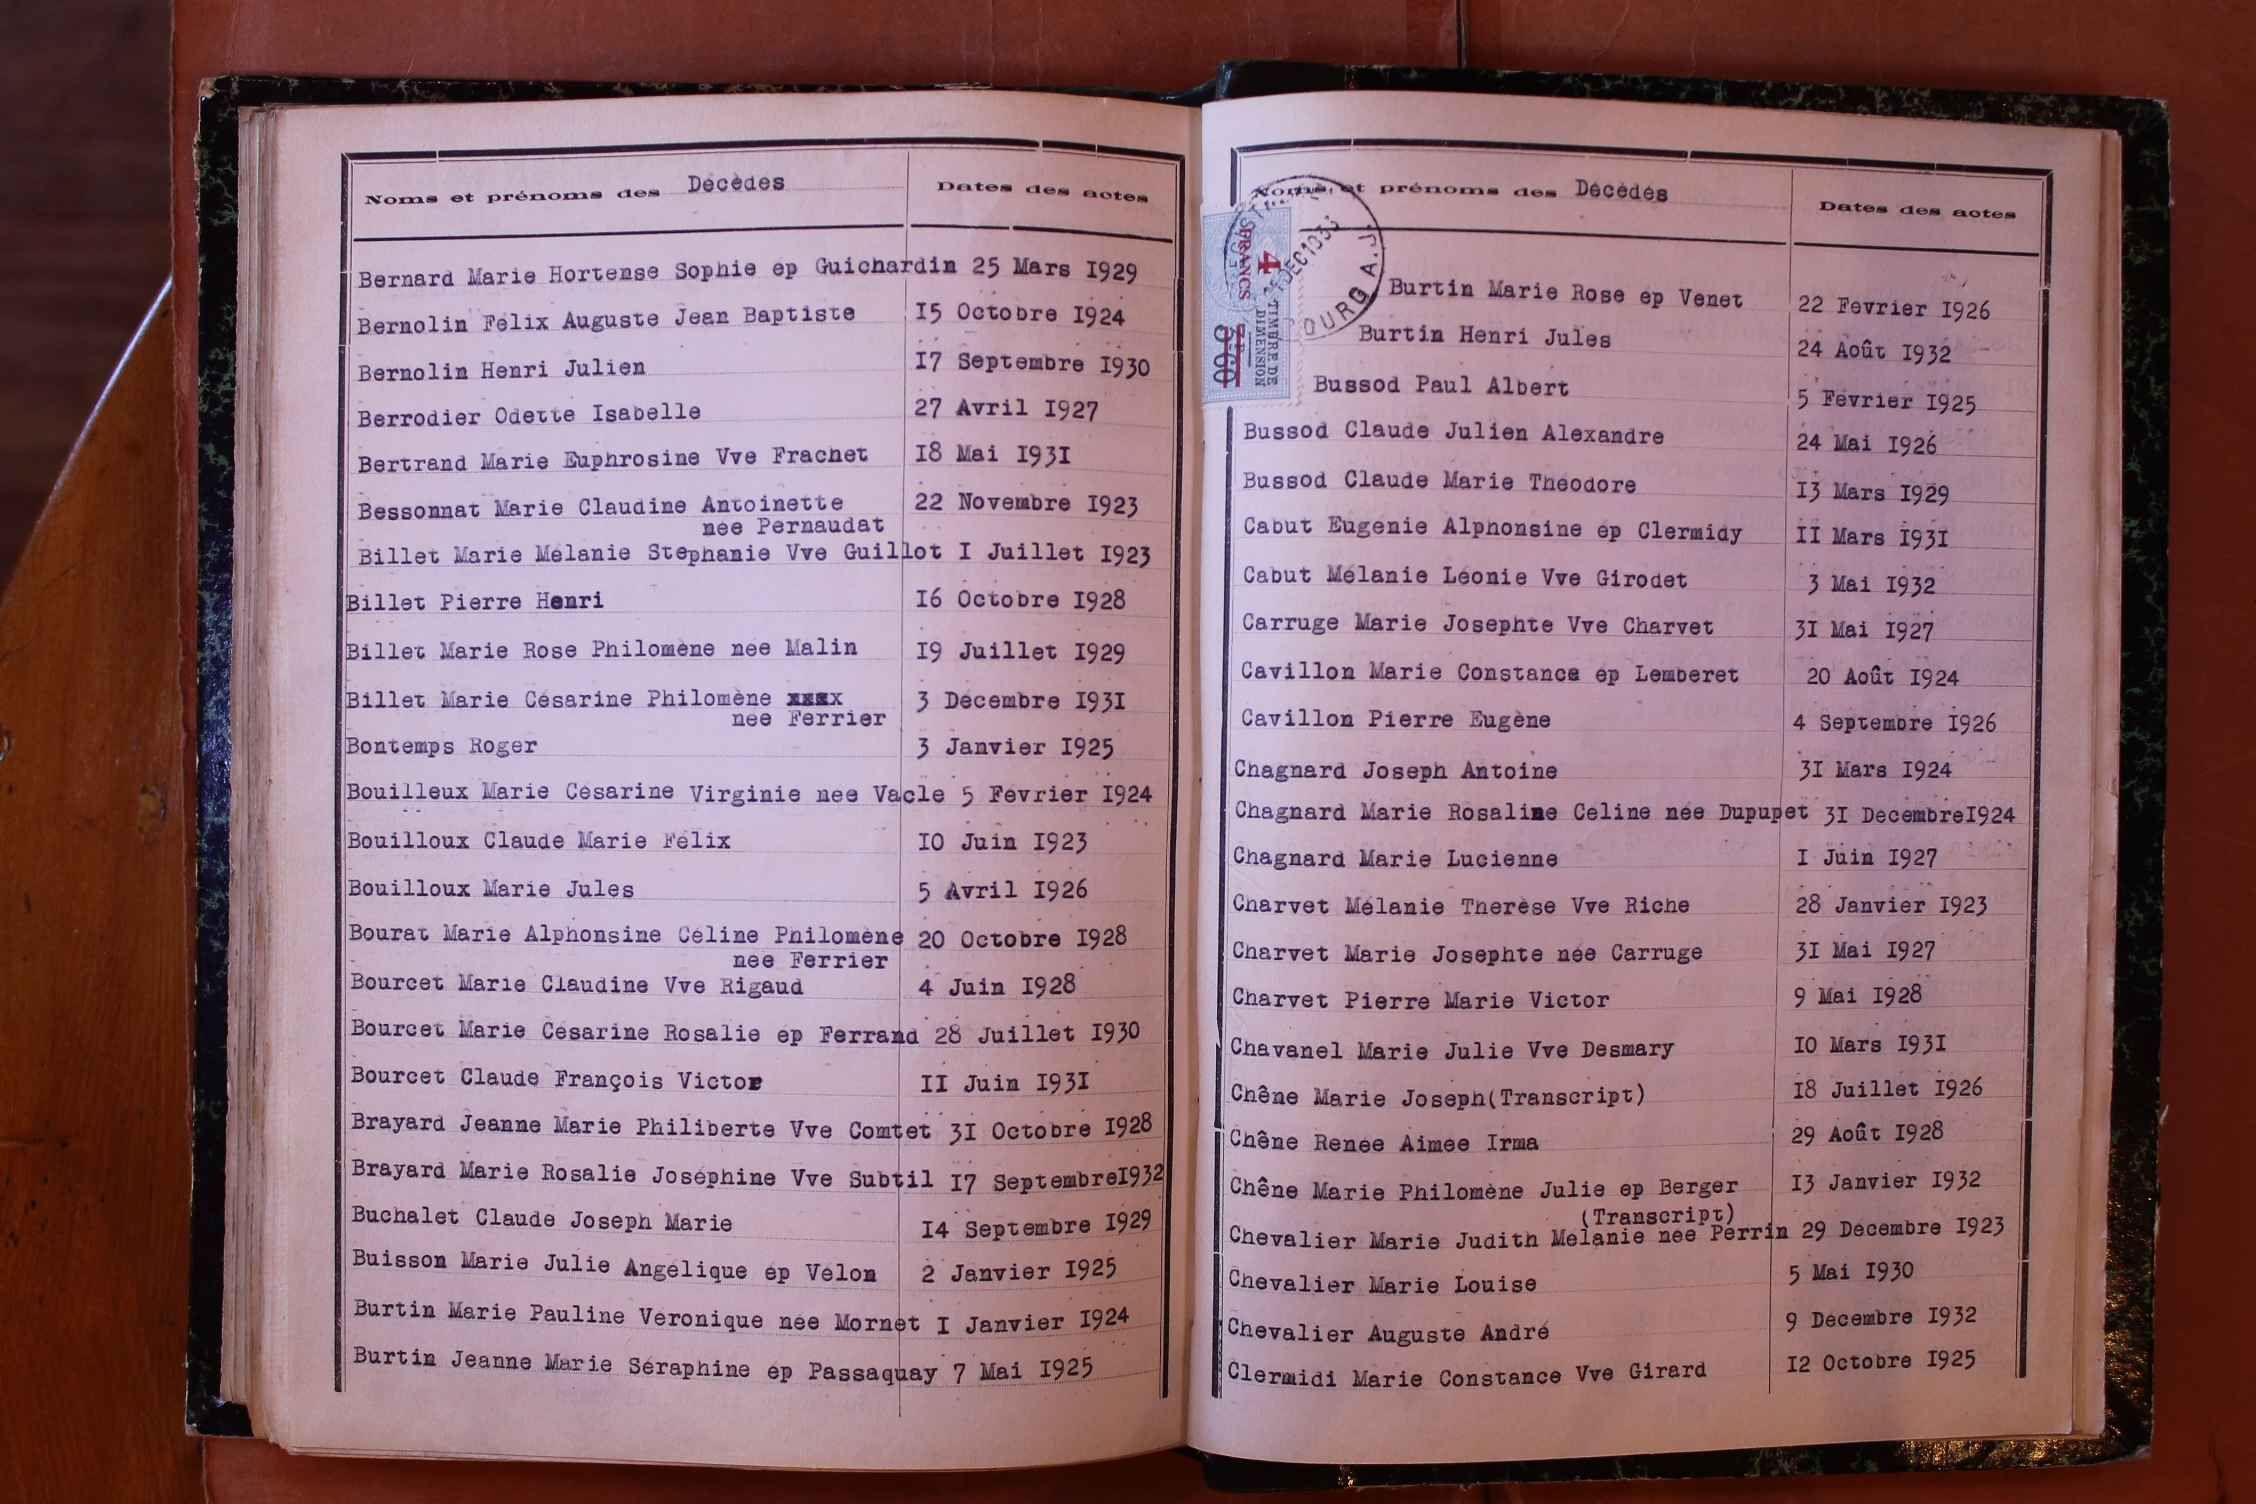 Noms et prénoms des Décédés Dates des actes
Bernard Marie Hortense Sophie ép Guichardin 25 Mars I929
Bernolin Félix Auguste Jean Baptiste I5 Octobre I924
Bernolin Henri Julien I7 Septembre I930
Berrodier Odette Isabelle 27 Avril I927
Bertrand Marie Euphrosine Vve Frachet I8 Mai I93I
Bessonnat Marie Claudine Antoinette 22 Novembre I923
née Pernaudat
Billet Marie Mélanie Stéphanie Vve Guillot I Juillet I923
Billet Pierre Henri I6 Octobre I928
Billet Marie Rose Philomène née Malin I9 Juillet I929
Billet Marie Césarine Philomène xxxx 3 Décembre I93I
née Ferrier
Bontemps Roger 3 Janvier I925
Bouilleux Marie Césarine Virginie née Vacle 5 Février I924
Bouilloux Claude Marie Félix I0 Juin I923
Bouilloux Marie Jules 5 Avril I926
Bourat Marie Alphonsine Céline Philomène 20 Octobre I928
née Ferrier
Bourcet Marie Claudine Vve Rigaud 4 Juin I928
Bourcet Marie Césarine Rosalie ép Ferrand 28 Juillet I930
Bourcet Claude François Victor II Juin I93I
Brayard Jeanne Marie Philiberte Vve Comtet 3I Octobre I928
Brayard Marie Rosalie Joséphine Vve Subtil I7 SeptembreI932
Buchalet Claude Joseph Marie I4 Septembre I929
Buisson Marie Julie Angélique ép Velon 2 Janvier I925
Burtin Marie Pauline Véronique née Mornet I Janvier I924
Burtin Jeanne Marie Séraphine ép Passaquay 7 Mai I925
Noms et prénoms des Décédés Dates des actes
4 FRANCS
TIMBRE DE
DIMENSION
DEC 1933
OURG A.J.
Burtin Marie Rose ép Venet 22 Février I926
Burtin Henri Jules 24 Août I932
Bussod Paul Albert 5 Février I925
Bussod Claude Julien Alexandre 24 Mai I926
Bussod Claude Marie Théodore I3 Mars I929
Cabut Eugénie Alphonsine ép Clermidy II Mars I93I
Cabut Mélanie Léonie Vve Girodet 3 Mai I932
Carruge Marie Josephte Vve Charvet 3I Mai I927
Cavillon Marie Constance ép Lemberet 20 Août I924
Cavillon Pierre Eugène 4 Septembre I926
Chagnard Joseph Antoine 3I Mars I924
Chagnard Marie Rosaline Céline née Dupupet 3I DécembreI924
Chagnard Marie Lucienne I Juin I927
Charvet Mélanie Thérèse Vve Riche 28 Janvier I923
Charvet Marie Josephte née Carruge 3I Mai I927
Charvet Pierre Marie Victor 9 Mai I928
Chavanel Marie Julie Vve Desmary I0 Mars I93I
Chêne Marie Joseph(Transcript) I8 Juillet I926
Chêne Renée Aimée Irma 29 Août I928
Chêne Marie Philomène Julie ép Berger I3 Janvier I932
(Transcript)
Chevalier Marie Judith Mélanie née Perrin 29 Décembre I923
Chevalier Marie Louise 5 Mai I930
Chevalier Auguste André 9 Décembre I932
Clermidi Marie Constance Vve Girard I2 Octobre I925